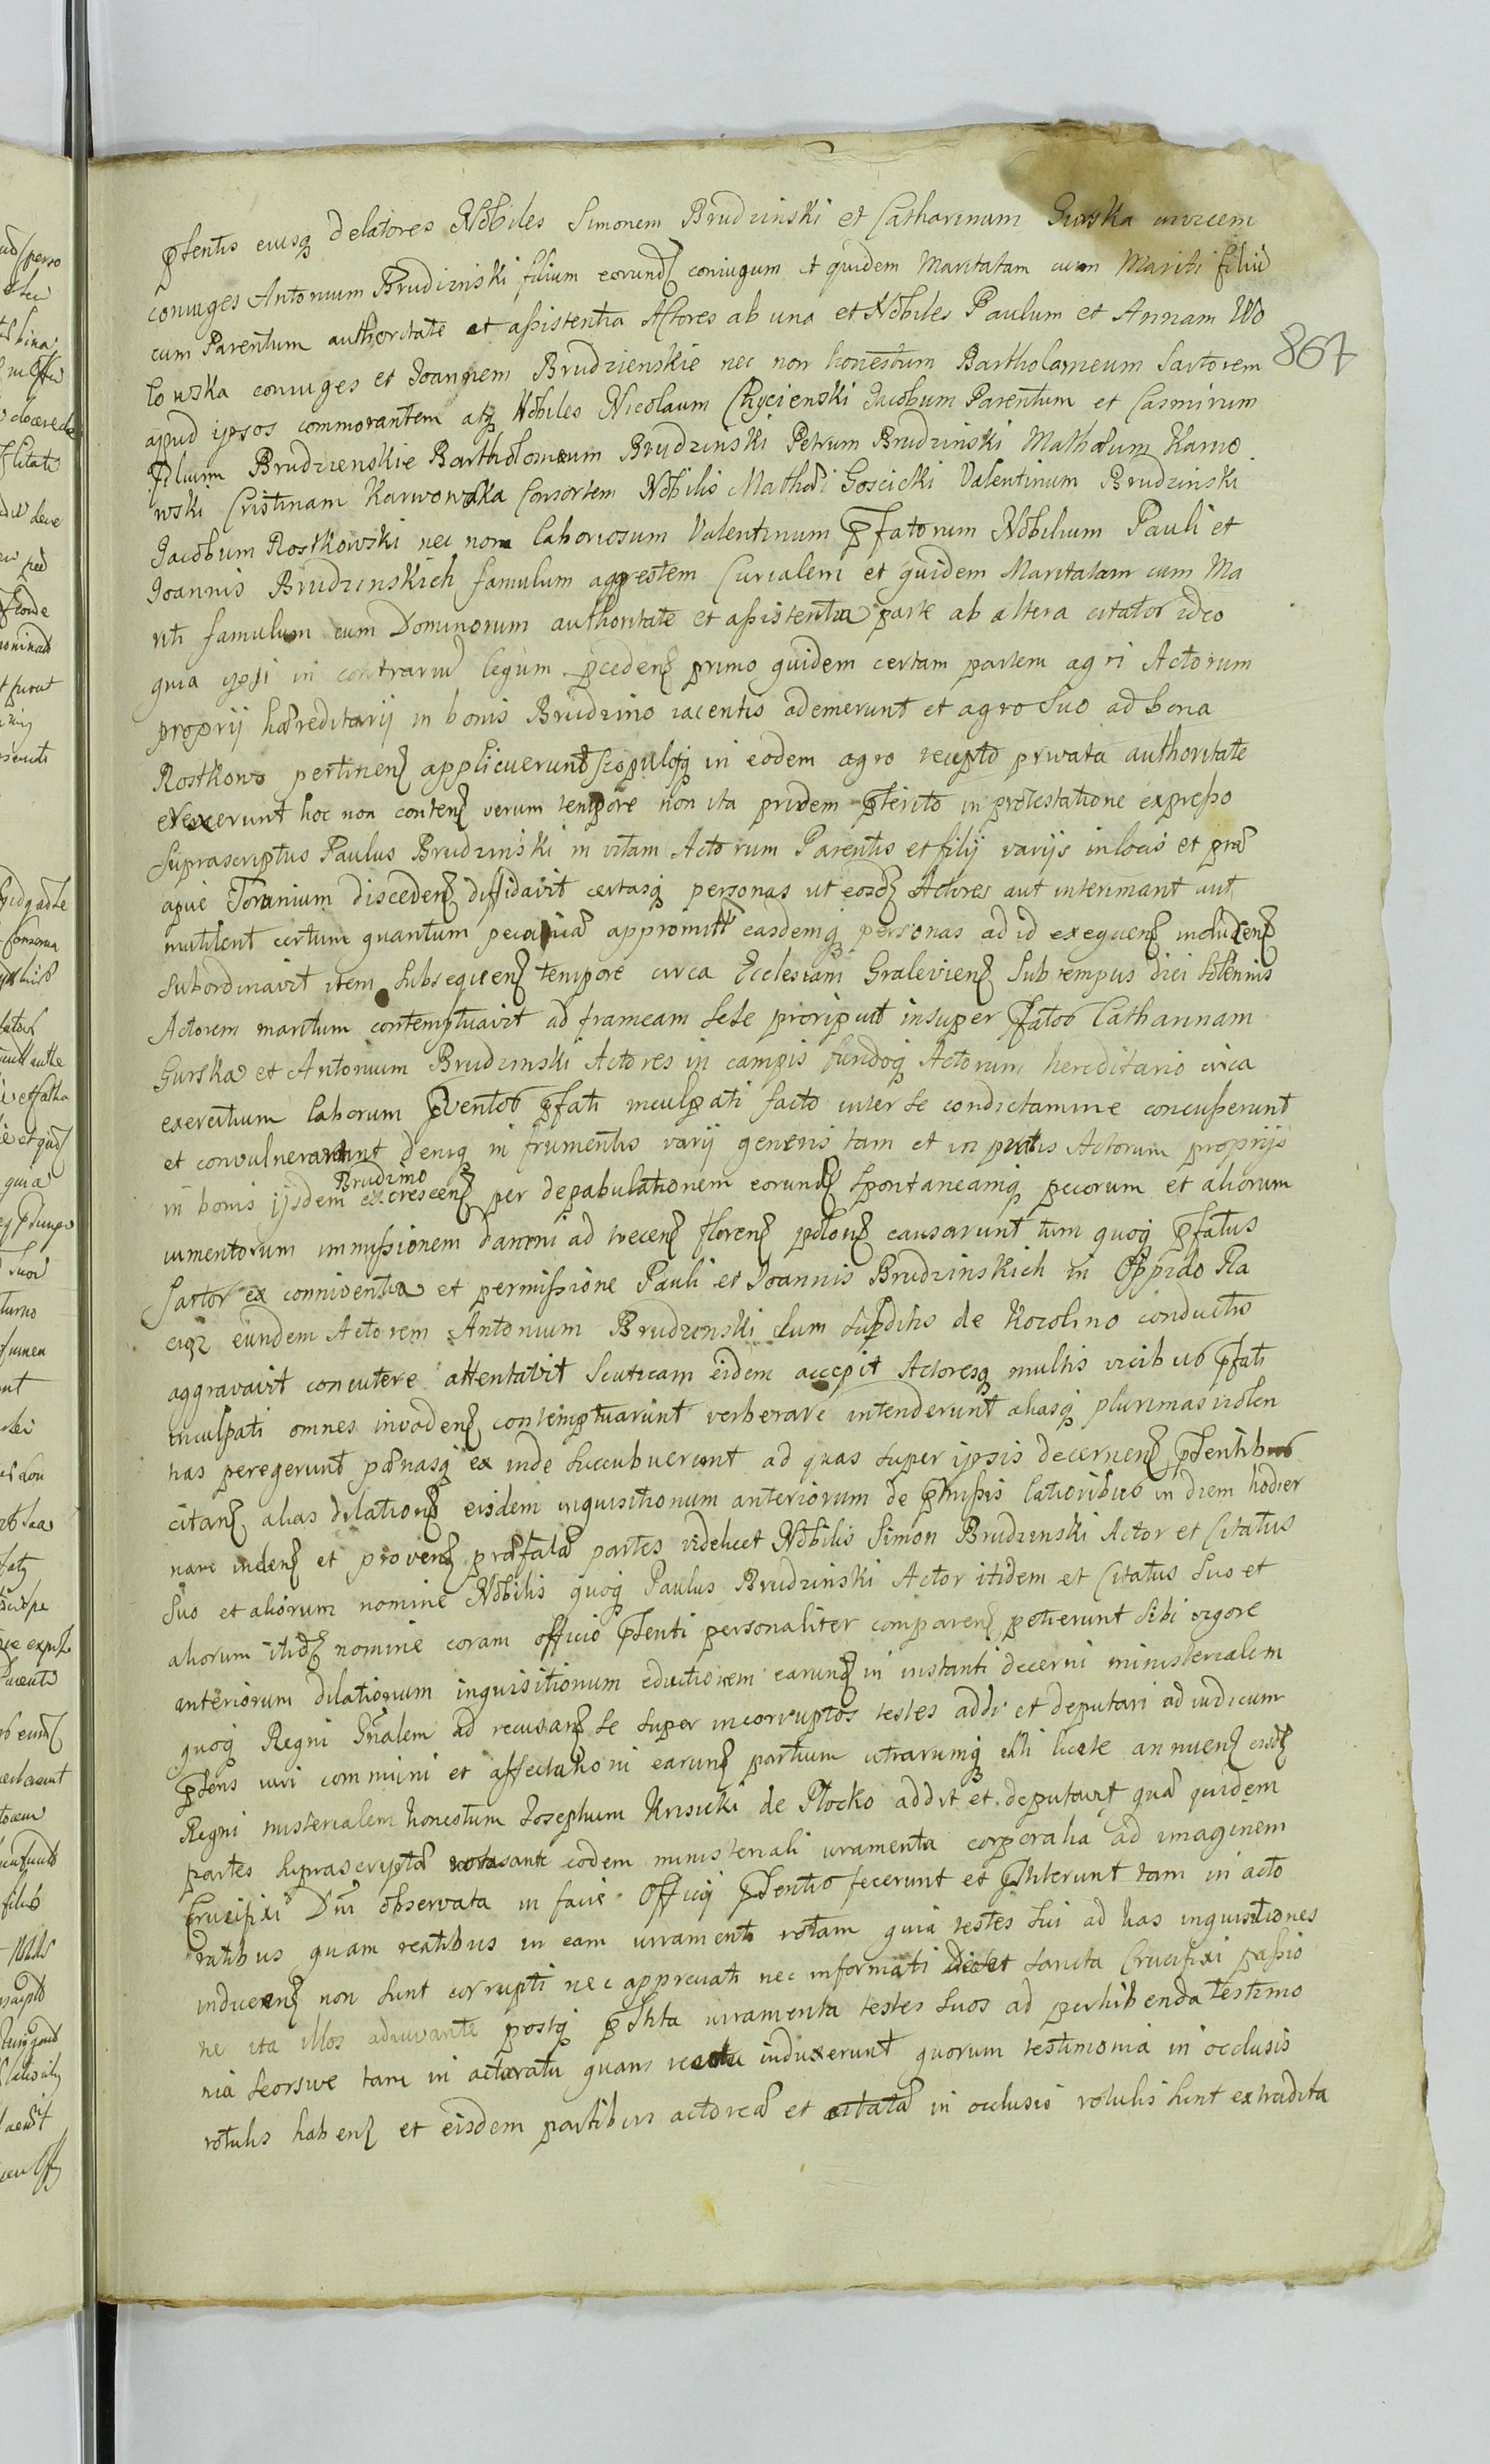 ꝑsentis eiusq delatores Nobiles Simonem Brudzinski et Catharinam Gurska invicem
coniuges Antonium Brudzinski filium eorund coniugum et quidem Maritatam cum Mariti filiu
cum Parentum authoritate et assistentia Actores ab una et Nobiles Paulum et Annam Wo
lowska coniuges et Joannem Brudzienskie nec non honestum Bartholameum Sartorem
apud ipsos commorantem atq Nobiles Nicolaum Chycienski Jacobum Parentum et Casmirum
filium Brudzienskie Bartholomeum Brudzinski Petrum Brudzinski Mathaeum Karwo
wski Cristinam Karwowska Consortem Nobilis Mathaei Goscicki Valentinum Brudzinski
Jacobum Rostkowski nec non laboriosum Valentinum ꝑfatorum Nobilium Pauli et
Joannis Brudzinskich famulum agrestem Curialem et quidem Maritatam cum Ma
riti famulum cum Dominorum authoritate et assistentia parte ab altera citatos ideo
quia ipsi in contrariu legum ꝓceden primo quidem certam partem agri Actorum
proprij haereditarij in bonis Brudzino iacentis ademerunt et agro Suo ad bona
Rostkowo pertinen applicuerunt scopulosq in eodem agro recepto privata authoritate
erexerunt hoc non conten verum tempore non ita pridem ꝑterito in protestatione expresso
Suprascriptus Paulus Brudzinski in vitam Actorum Parentis et filij varijs in locis et prae
cipue Torunium disceden diffidavit certasq personas ut eosd Actores aut interimant aut
mutilent certum quantum pecuniae appromitt easdemq personas ad id exequen inducen
subordinavit item subsequen tempore circa Ecclesiam Gralevien sub tempus diei solennis
Actorem maritum contemptuavit ad frameam sese proripuit insuper ꝑfatos Catharinam
Gurska et Antonium Brudzinski Actores in campis fundoq Actorum hereditario circa
exercitium laborum ꝓventos ꝑfati inculpati facto inter se condictamine concusserunt
et convulnerarunt deniq in frumentis varij generis tam et in pratis Actorum proprijs
in bonis ijsdem Brudzino excrescen per depabulationem eorund spontaneamq pecorum et aliorum
iumentorum immissionem damni ad trecen floren polon causarunt tum quoq ꝑfatus
Sartor ex conniventia et permissione Pauli et Joannis Brudzinskich in Oppido Ra
ciąz eundem Actorem Antonium Brudzenski cum subditis de Kozolino conductis
aggravavit concutere attentavit Scuticam eidem accepit Actoresq multis vicibus ꝑfati
inculpati omnes invaden contemptuarunt verberare intenderunt aliasq plurimas violen
tias peregerunt paenasq ex inde succubuerunt ad quas super ipsis decernen ꝑsentibus
citan alias dilation eisdem inquisitionum anteriorum de ꝑmissis latioribus in diem hodier
nam inciden et proven praefatae partes videlicet Nobilis Simon Brudzinski Actor et Citatus
suo et aliorum nomine Nobilis quoq Paulus Brudzinski Actor itidem et Citatus suo et
aliorum itid nomine coram officio ꝑsenti personaliter comparen petierunt sibi vigore
anteriorum dilationum inquisitionum eductionem earund in instanti decerni ministerialem
quoq Regni Gnalem ad recusan se super incorruptos testes addi et deputari ad iudicium
ꝑsens iuri communi et affectationi earund partium utrarumq uti licite annuen eisd
Regni misterialem honestum Josephum Krisicki de Plocko addit et deputavit quae quidem
partes suprascriptae rotasante eodem ministeriali iuramenta corporalia ad imaginem
Crucifixi Dni observata in facie Officij ꝑsentis fecerunt et ꝑstiterunt tam in acto
ratibus quam reatibus in eam iuramenti rotam quia testes sui ad has inquisitiones
inducen non sunt corrupti nec appreciati nec informati sancta Crucifixi passio
ne ita illos adiuvante postq ꝑstita iuramenta testes suos ad perhibenda testimo
nia seorsive tam in actoratu quam reatu induxerunt quorum testimonia in occlusis
rotulis haben et eisdem partibus actoreae et citatae in occlusis rotulis sunt extradita
867